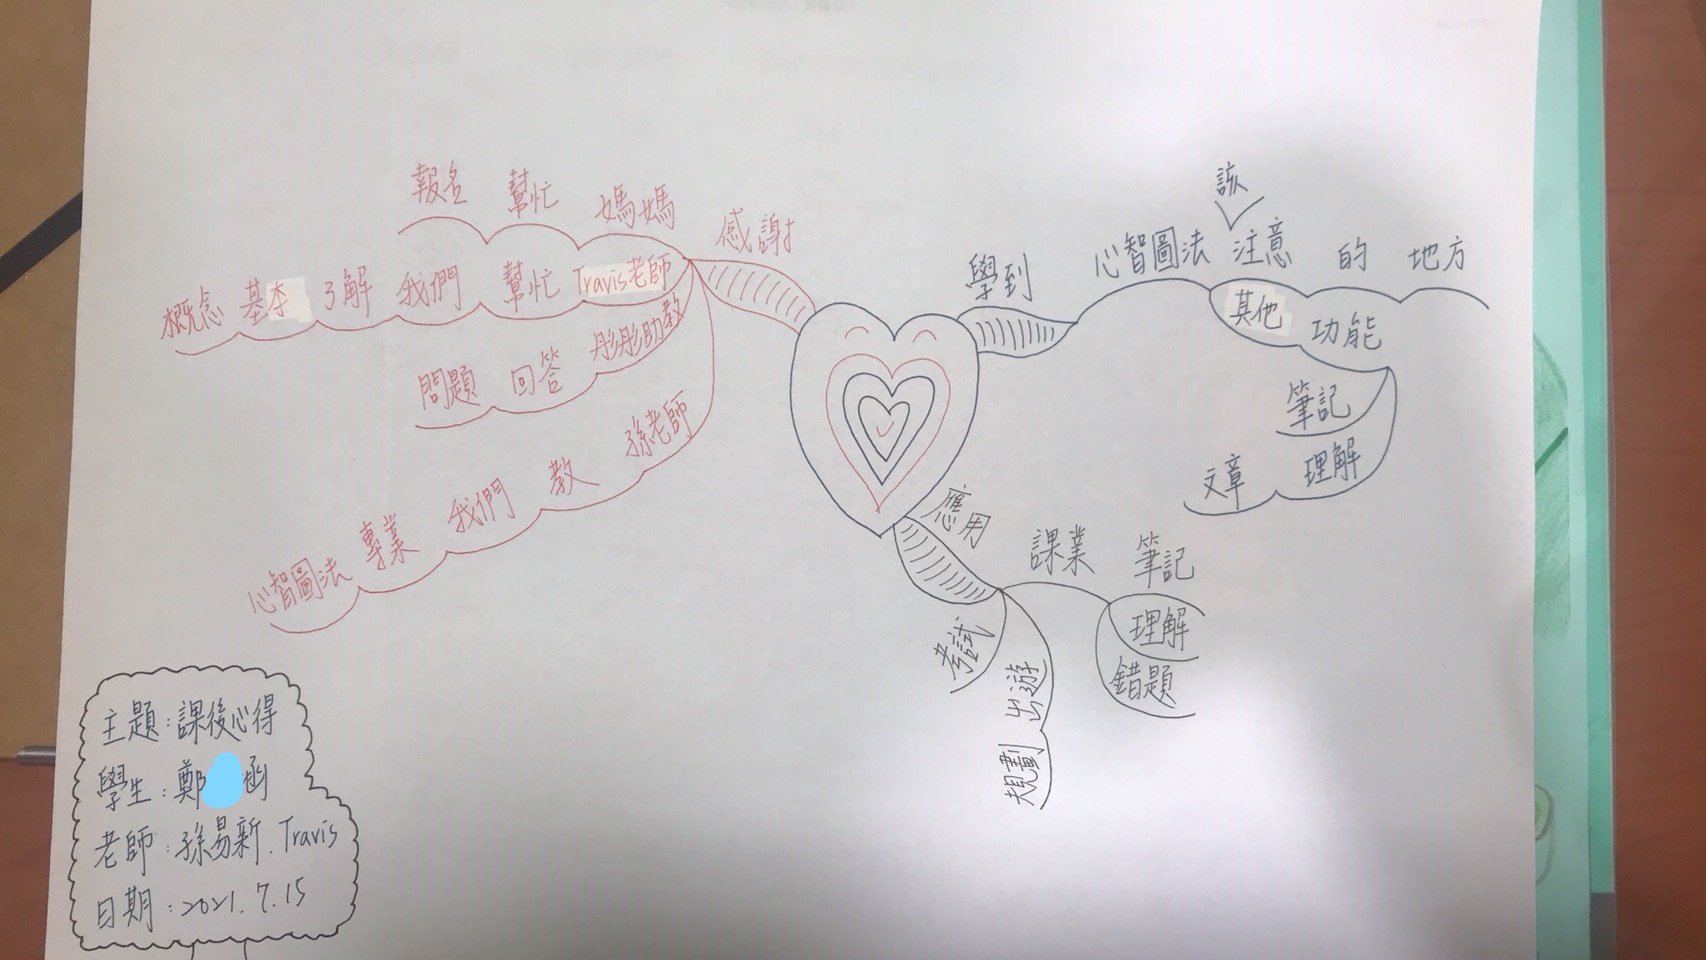 感謝
報名 幫忙 媽媽
概念 基本 了解 我們 幫忙 Travis老師
問題 回答 彤彤助教
心智圖法 專業 我們 教 孫老師
學到
該
心智圖法 注意 的 地方
其他 功能
筆記
文章 理解
應用
課業 筆記
理解
錯題
出遊
規劃
考試
主題:課後心得
學生:鄭 涵
老師:孫易新.Travis
日期:2021.7.15